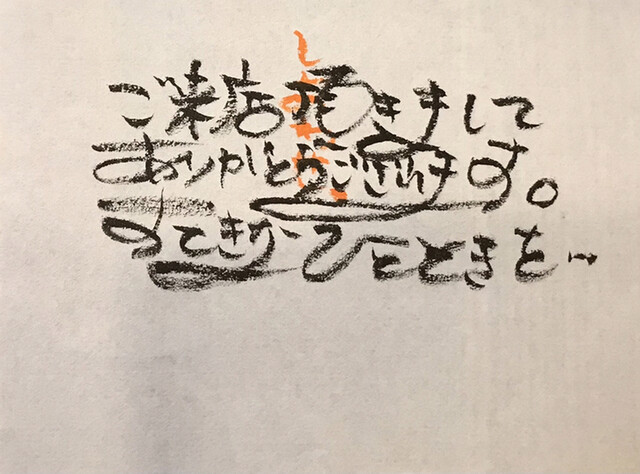 ご来店頂きまして
ありがとうございます。
すてきなひとときを…